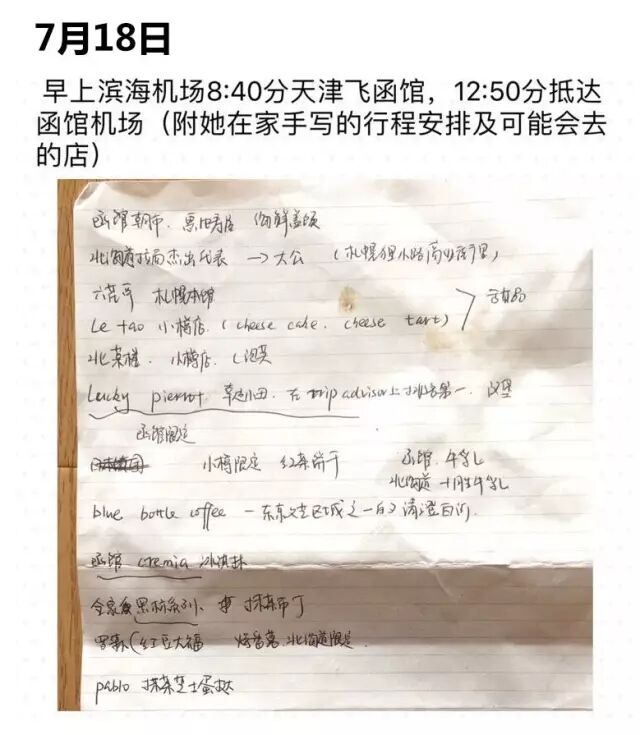 7月18日
早上滨海机场8:40分天津飞函馆，12:50分抵达
函馆机场（附她在家手写的行程安排及可能会去
的店）
函馆朝市 海鲜盖饭
北海道拉面杰出代表 → 大公 （札幌狸小路
六花亭 札幌本馆
甜品
Le tao 小樽店.（cheese cake. cheese tart）
北菓楼. 小樽店. 泡芙
Lucky pierrot 在 trip advisor上 第一. 汉堡
函馆限定
小樽限定 红茶饼干 函馆. 牛乳
北海道 十胜牛乳
blue bottle coffee — 东京 之一的 清澄白河
函馆 cremia 冰淇淋
全家 黑标系列、 抹茶布丁
罗森（红豆大福 北海道限定
pablo 抹茶芝士蛋挞